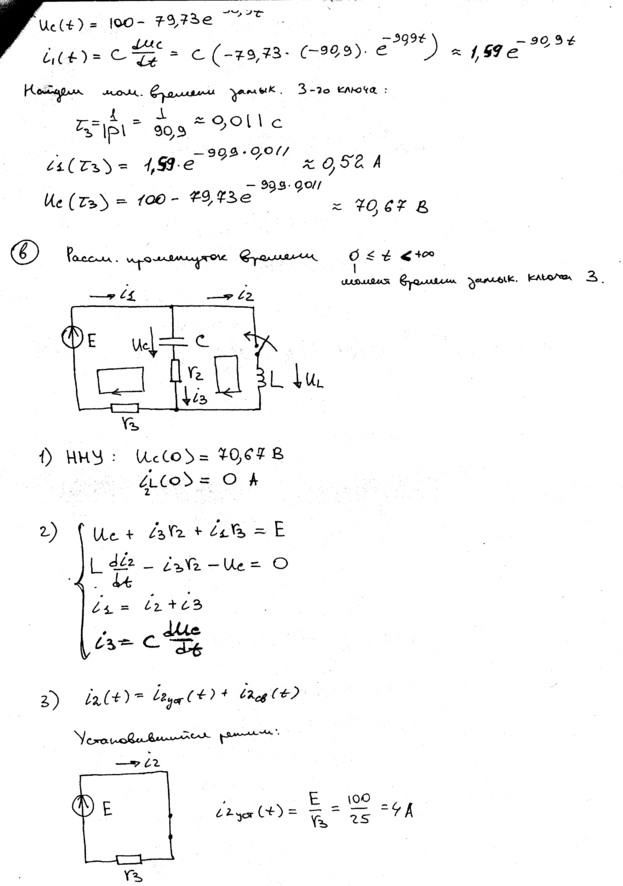 Uc(t) = 100 - 79,73e^-90,9t
i₁(t) = C dUc/dt = C(-79,73·(-90,9)·e^-90,9t) ≈ 1,59e^-90,9t
Найдем мом. времени замык. 3-го ключа:
τ₃ = 1/|P| = 1/90,9 ≈ 0,011 c
i₁(τ₃) = 1,59·e^-90,9·0,011 ≈ 0,52 A
Uc(τ₃) = 100 - 79,73e^-90,9·0,011 ≈ 70,67 В
в Рассм. промежуток времени 0 ≤ t < +∞
момент времени замык. ключа 3.
i₁ i₂
E Uc C
r₂ L U_L
i₃
r₃
1) ННУ: Uc(0) = 70,67 В
i_L₂(0) = 0 A
2) { Uc + i₃r₂ + i₁r₃ = E
L di₂/dt - i₃r₂ - Uc = 0
i₁ = i₂ + i₃
i₃ = C dUc/dt
3) i₂(t) = i₂уст(t) + i₂св(t)
Установившийся режим:
i₂
E i₂уст(t) = E/r₃ = 100/25 = 4 A
r₃